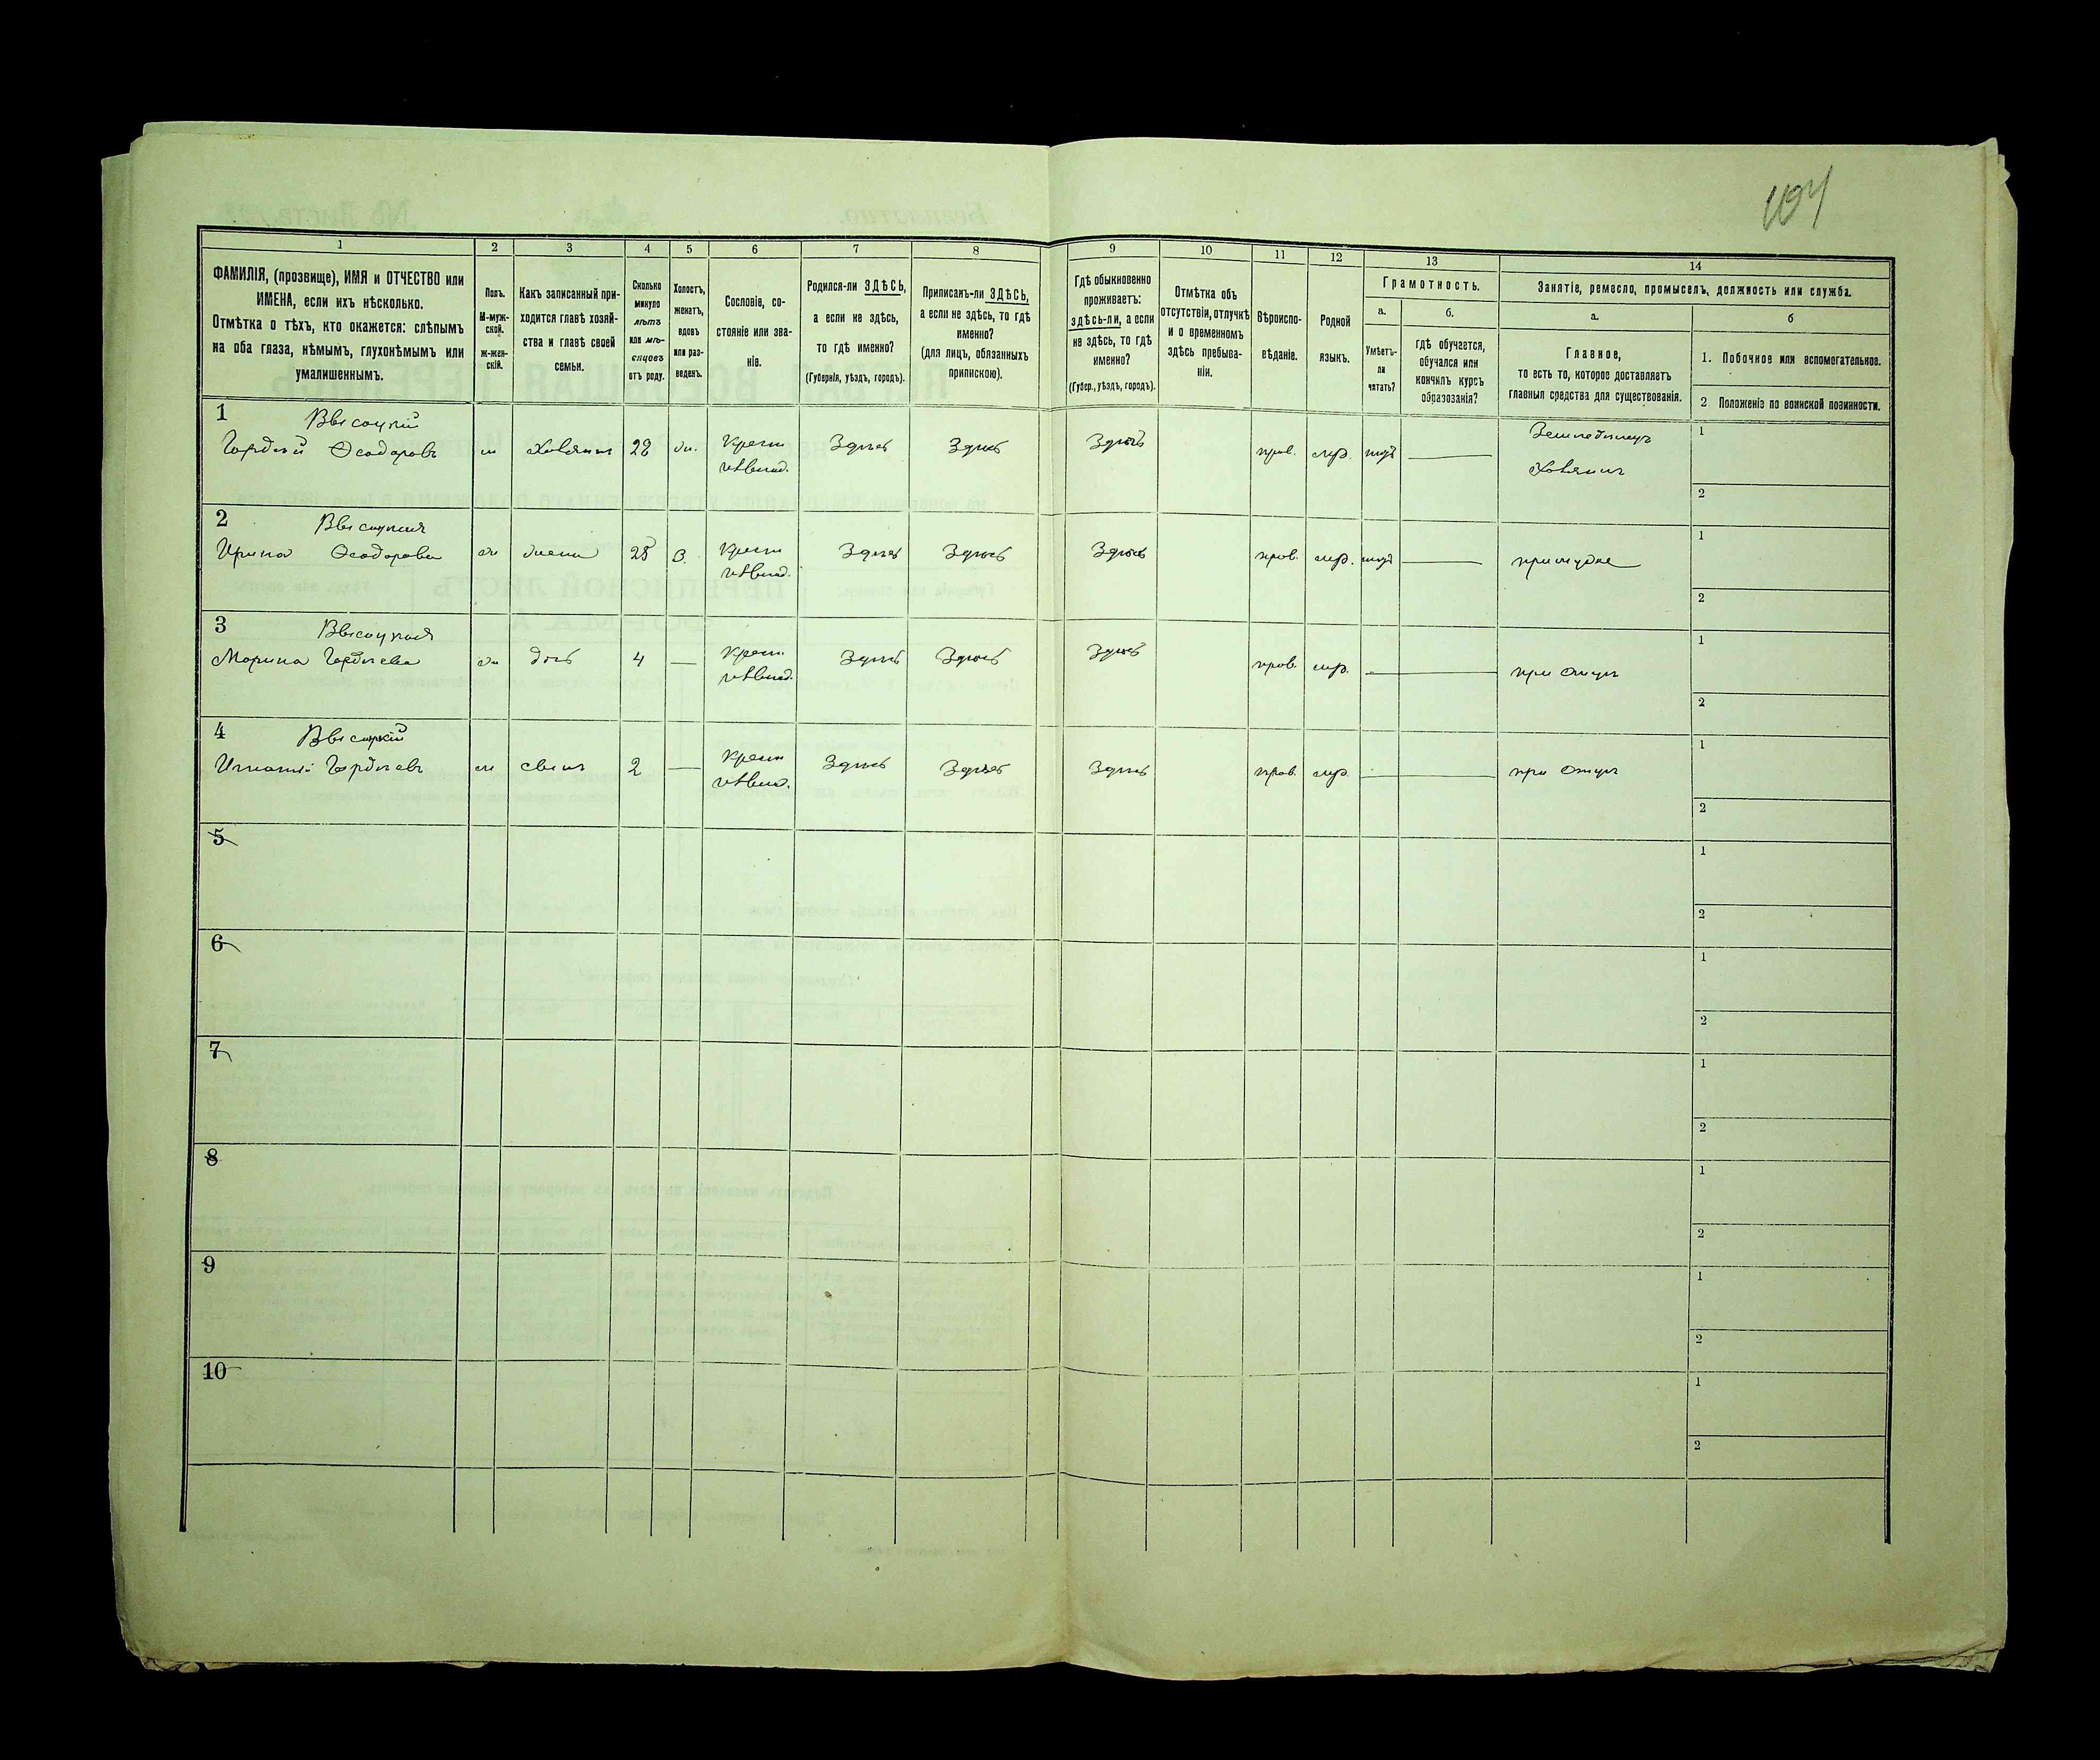 104
1
2
3
4
5
6
7
8
9
10
11
12
13
14
ФАМИЛІЯ, (прозвище), ИМЯ и ОТЧЕСТВО или
ИМЕНА, если ихъ нѣсколько.
Отмѣтка о тѣхъ, кто окажется: слѣпымъ
на оба глаза, нѣмымъ, глухонѣмымъ или
умалишеннымъ.
Полъ.
М-муж-
ской.
Ж-жен-
скій.
Какъ записанный при-
ходится главѣ хозяй-
ства и главѣ своей
семьи.
Сколько
минуло
лѣтъ
или мѣ-
сяцевъ
отъ роду.
Холостъ,
женатъ,
вдовъ
или раз-
веденъ.
Сословіе, со-
стояніе или зва-
ніе.
Родился-ли ЗДѢСЬ,
а если не здѣсь,
то гдѣ именно?
(Губернія, уѣздъ, городъ).
Приписанъ-ли ЗДѢСЬ,
а если не здѣсь, то гдѣ
именно?
(для лицъ, обязанныхъ
припискою).
Гдѣ обыкновенно
проживаетъ:
здѣсь-ли, а если
не здѣсь, то гдѣ
именно?
(Губер., уѣздъ, городъ).
Отмѣтка объ
отсутствіи, отлучкѣ
и о временномъ
здѣсь пребыва-
ніи.
Вѣроиспо-
вѣданіе.
Родной
языкъ.
Грамотность.
а.
Умѣетъ-
ли
читать?
б.
гдѣ обучается,
обучался или
кончилъ курсъ
образованія?
Занятіе, ремесло, промыселъ, должность или служба.
а.
Главное,
то есть то, которое доставляетъ
главныя средства для существованія.
б
1. Побочное или вспомогательное.
2 Положеніе по воинской повинности.
1 Высоцкій
Гордѣй Ѳеодоровъ м хозяинъ 28 ж. Крест. Здѣсь Здѣсь Здѣсь прав. нѣтъ Земледѣлецъ 1
хозяинъ
2
2 Высоцкая
Ирина Ѳеодорова ж жена 28 З. Крест. Здѣсь Здѣсь Здѣсь прав. нѣтъ при мужѣ 1
2
3 Высоцкая
Марина Гордѣева ж дочь 4 Крест. Здѣсь Здѣсь Здѣсь прав. при отцѣ 1
2
4 Высоцкій
Игнатій Гордѣевъ м сынъ 2 Крест. Здѣсь Здѣсь Здѣсь прав. при отцѣ 1
2
5 1
2
6 1
2
7 1
2
8 1
2
9 1
2
10 1
2